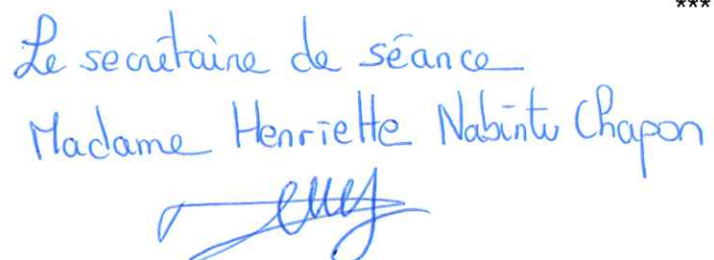 ***
Le secrétaire de séance
Madame Henriette Nabintu Chapon